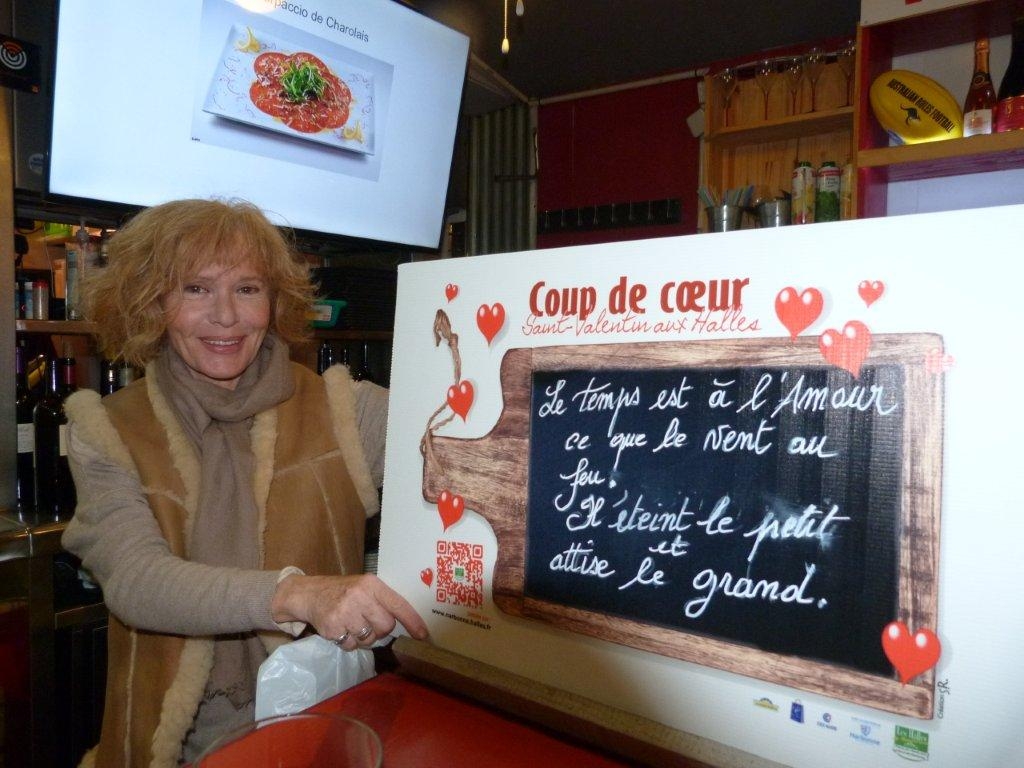 rpaccio de Charolais
AUSTRALIAN RULES FOOTBALL
Coup de cœur
Saint-Valentin aux Halles
Le temps est à l'Amour
ce que le vent au
feu.
Il éteint le petit
et
attise le grand.
www.narbonne.halles.fr
Création SR
Narbonne
Les Halles